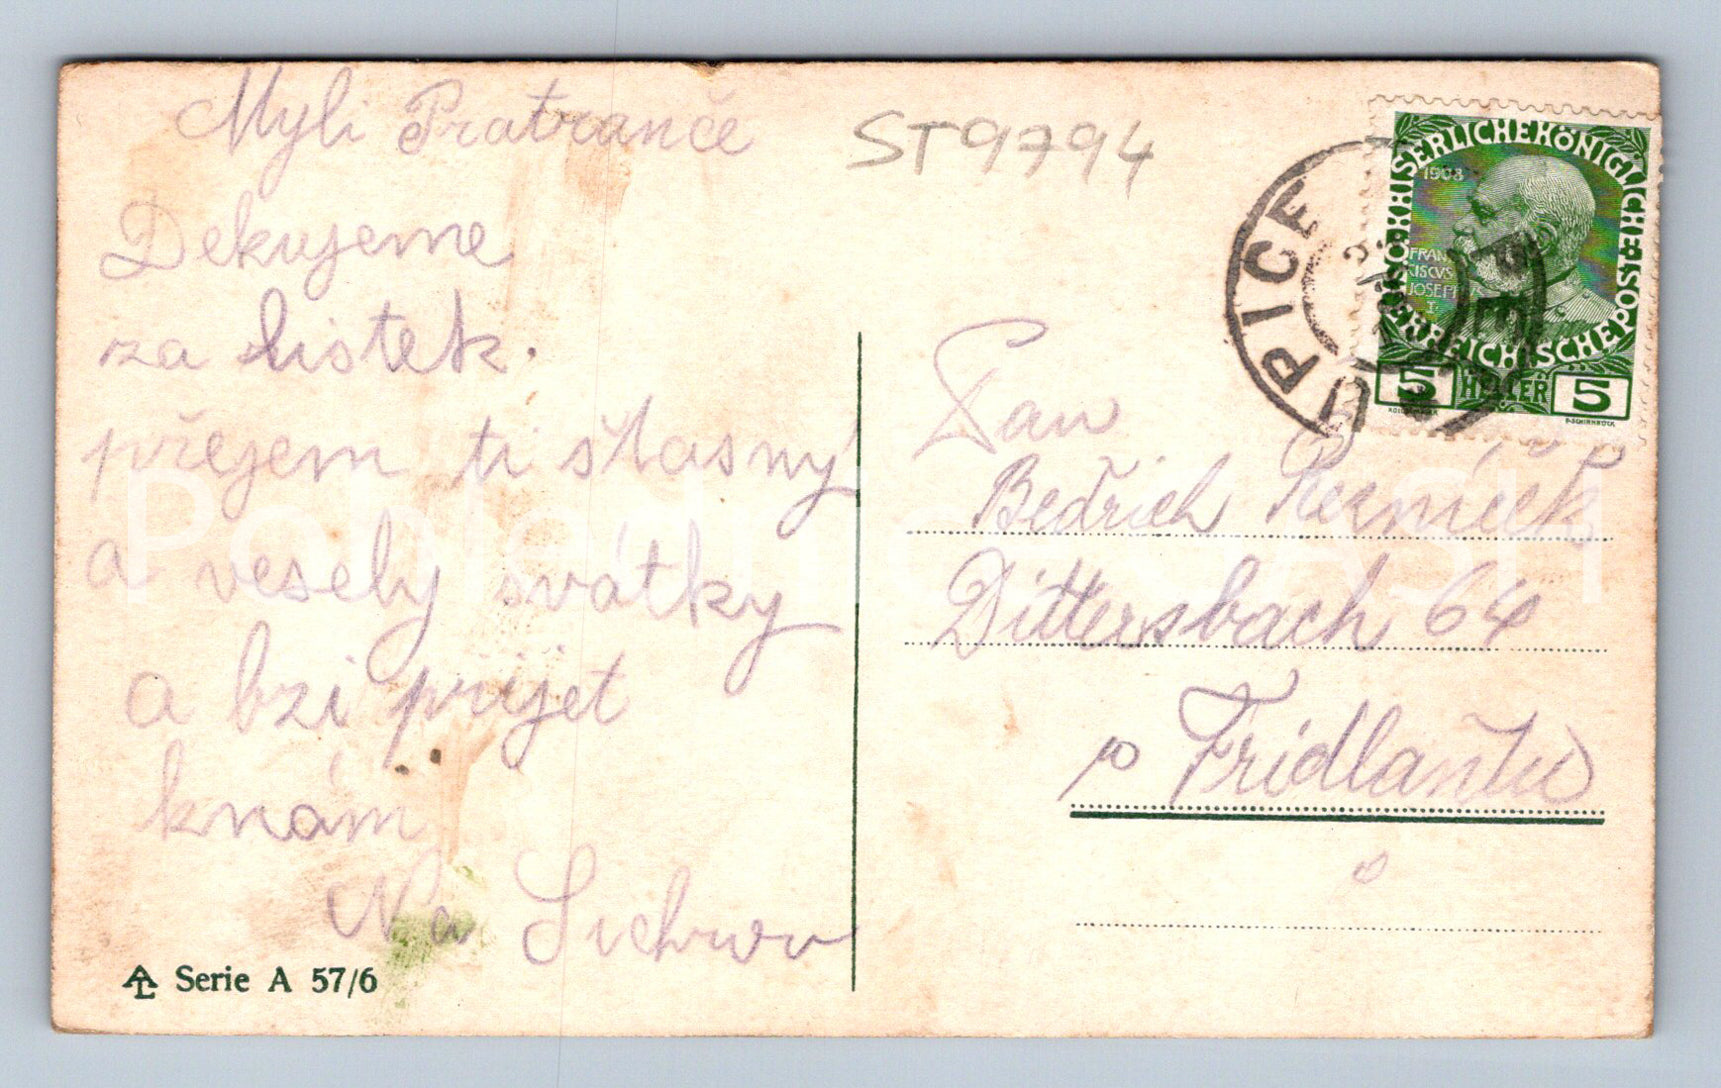 Myli Bratranče
Dekujeme
za listek.
přejem ti stasny
a vesely svátky
a bzi přijet
knám
Na Sichrov
Serie A 57/6
ST9794
ÚPICE
KAISERLICHE KÖNIGLICHE ÖSTERREICHISCHE POST
1908
FRAN
CISCVS
JOSEPH
I.
5 HELLER 5
Pan
Bedřich Řezníček
Dittersbach 64
p Fridlantu